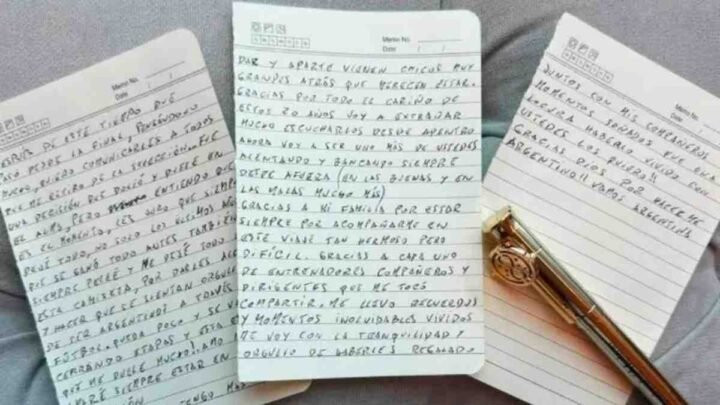 Memo No.
Date / /
ESPUÉS DE ESTE TIEMPO QUE
ASO DESDE LA FINAL, PENSÁNDOLO
MUCHO, QUIERO COMUNICARLES A TODOS
QUE ME RETIRO DE LA SELECCIÓN. FUE
UNA DECISIÓN QUE DOLIÓ Y DUELE EN
EL ALMA, PERO ENTIENDO QUE
ES EL MOMENTO, LES JURO QUE SIEMP
DEJÉ TODO, NO SOLO LOS ÚLTIMOS AÑO
QUE SE GANÓ TODO ANTES TAMBIÉN
SIEMPRE PELEÉ Y ME DEJÉ TODO
ESTA CAMISETA, POR DARLES ALE
Y HACER QUE SE SIENTAN ORGULL
DE SER ARGENTINOS A TRAVÉS
FÚTBOL. QUEDA POCO Y SE VA
CERRANDO ETAPAS Y ESTA ES
QUE ME DUELE MUCHO. AMO
SIEMPRE ESTAR EN
TENGO MÁS
Memo No.
Date / /
DAR Y APARTE VIENEN CHICOS MUY
GRANDES ATRÁS QUE MERECEN ESTAR.
GRACIAS POR TODO EL CARIÑO DE
ESTOS 20 AÑOS VOY A EXTRAÑAR
MUCHO ESCUCHARLOS DESDE ADENTRO
AHORA VOY A SER UNO MÁS DE USTEDES
ALENTANDO Y BANCANDO SIEMPRE
DESDE AFUERA (EN LAS BUENAS Y EN
LAS MALAS MUCHO MÁS)
GRACIAS A MI FAMILIA POR ESTAR
SIEMPRE POR ACOMPAÑARME EN
ESTE VIAJE TAN HERMOSO PERO
DIFÍCIL. GRACIAS A CADA UNO
DE ENTRENADORES COMPAÑEROS Y
DIRIGENTES QUE ME TOCÓ
COMPARTIR. ME LLEVO RECUERDOS
Y MOMENTOS INOLVIDABLES VIVIDOS
ME VOY CON LA TRANQUILIDAD Y
ORGULLO DE HABERLES REGALADO
Memo No.
Date / /
JUNTOS CON MIS COMPAÑEROS
MOMENTOS SOÑADOS. FUE UNA
LOCURA HABERLO VIVIDO CON
USTEDES LOS QUIERO!!
GRACIAS DIOS POR HACERME
ARGENTINO!! VAMOS ARGENTINA